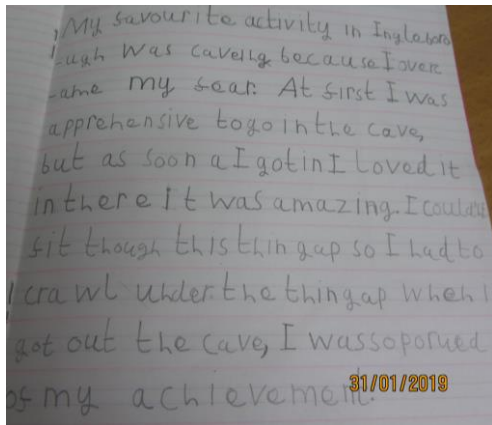 My favourite activity in Ingleboro
-ugh was caveing because I overc
-ame my fear. At first I was
apprehensive to go in the cave,
but as soon a I got in I loved it
in there it was amazing. I could
fit though this thin gap so I had to
crawl under the thin gap when I
got out the cave, I was so
of my achievement.
31/01/2019